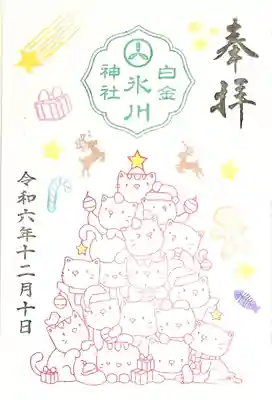 奉拝
白金
氷川
神社
令和六年十二月十日